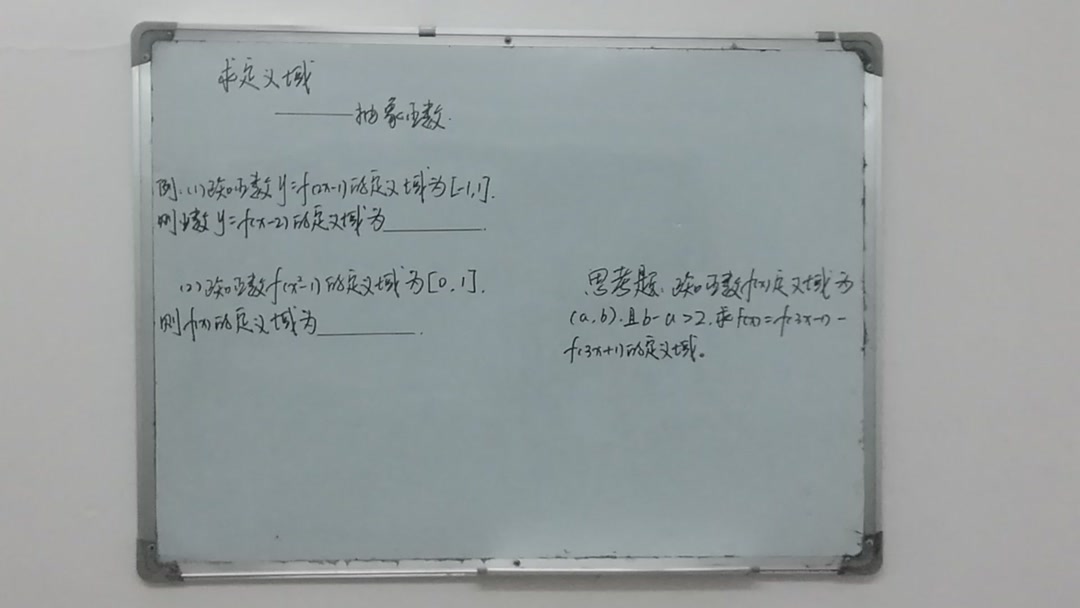 求定义域
——抽象函数.
例.(1)已知函数y=f(2x-1)的定义域为[-1,1].
则函数y=f(x-2)的定义域为________.
(2)已知函数f(x²-1)的定义域为[0,1].
则f(x)的定义域为________.
思考题:已知函数f(x)定义域为
(a,b).且b-a>2.求F(x)=f(3x-1)-
f(3x+1)的定义域。